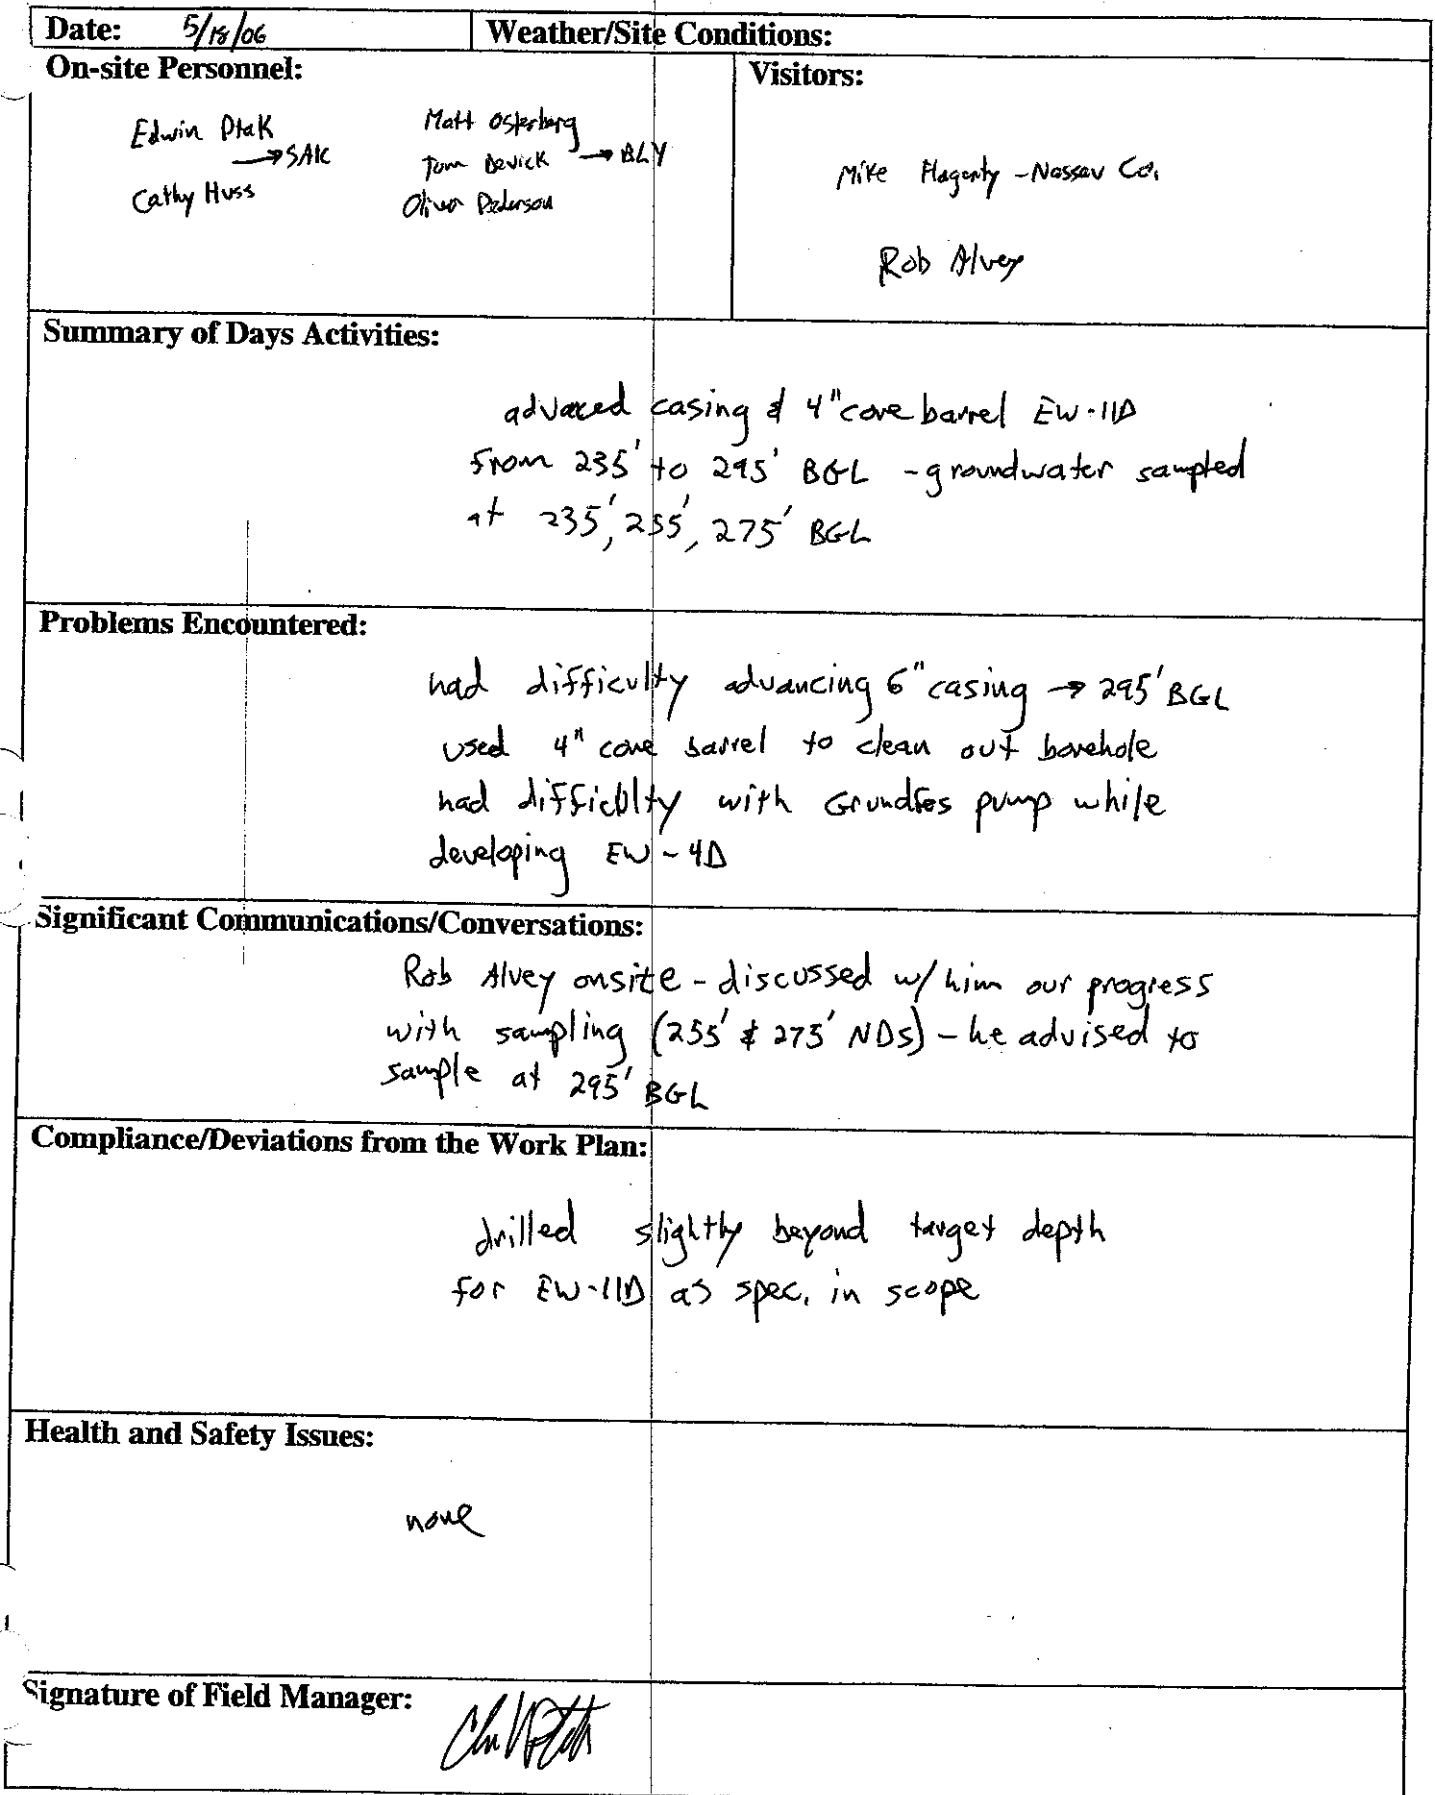 Date: 5/18/06 Weather/Site Conditions:
On-site Personnel:
Visitors:
Edwin Ptak
→SAIC
Cathy Huss
Matt Osterberg
Tom Devick → BLY
Oliver Pederson
Mike Flagerty - Nassau Co.
Rob Alvey
Summary of Days Activities:
advaced casing & 4" core barrel EW-11D
from 235' to 295' BGL - groundwater sampled
at 235', 255', 275' BGL
Problems Encountered:
had difficulty advancing 6" casing → 295' BGL
used 4" core barrel to clean out borehole
had difficulty with Grundfos pump while
developing EW-4D
Significant Communications/Conversations:
Rob Alvey onsite - discussed w/ him our progress
with sampling (255' & 275' NDs) - he advised to
sample at 295' BGL
Compliance/Deviations from the Work Plan:
drilled slightly beyond target depth
for EW-11D as spec. in scope
Health and Safety Issues:
none
Signature of Field Manager: